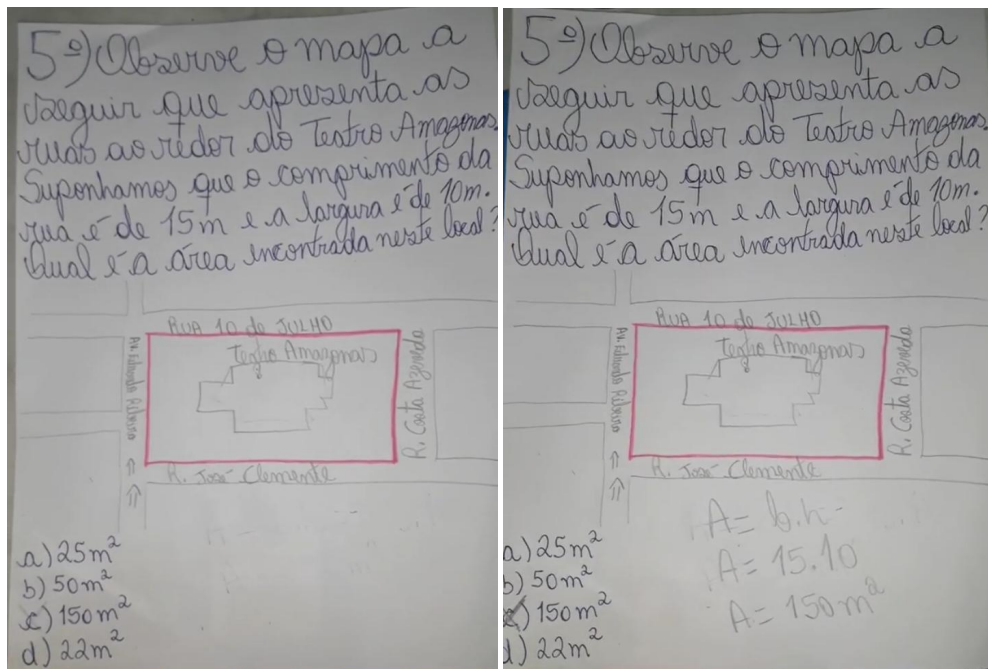 5º) Observe o mapa a
seguir que apresenta as
ruas ao redor do Teatro Amazonas.
Suponhamos que o comprimento da
rua é de 15m e a largura é de 10m.
Qual é a área incontrada neste local?
RUA 10 de JULHO
Teatro Amazonas
Av. Eduardo Ribeiro
R. Costa Azevedo
R. José Clemente
a) 25m²
b) 50m²
c) 150m²
d) 22m²
5º) Observe o mapa a
seguir que apresenta as
ruas ao redor do Teatro Amazonas.
Suponhamos que o comprimento da
rua é de 15m e a largura é de 10m.
Qual é a área incontrada neste local?
RUA 10 de JULHO
Teatro Amazonas
Av. Eduardo Ribeiro
R. Costa Azevedo
R. José Clemente
A = b.h
A = 15.10
A = 150m²
a) 25m²
b) 50m²
c) 150m²
d) 22m²